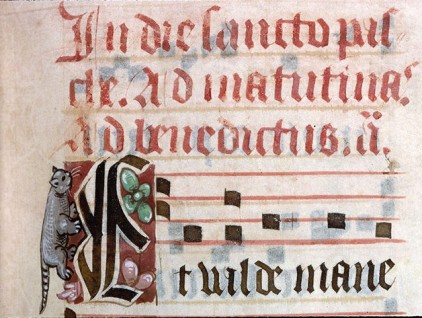 In die sancto pas
che. Ad matutinas
Ad benedictus. ā.
Et ualde mane